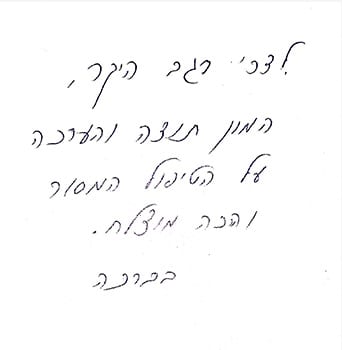 לצבי רגב היקר,
המון תודה והערכה
על הטיפול המסור
והכה מוצלח.
בברכה